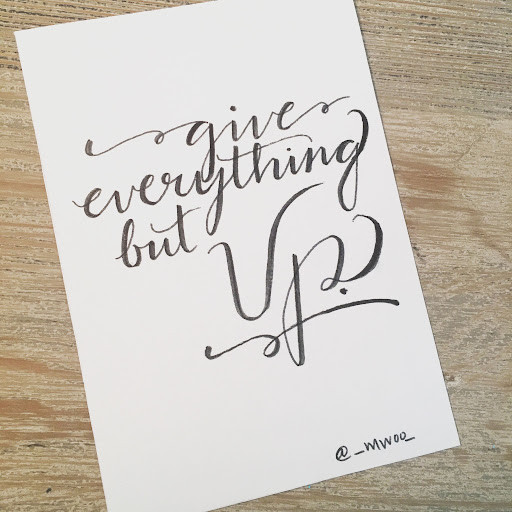 give
everything
but
Up.
@_mwoo_